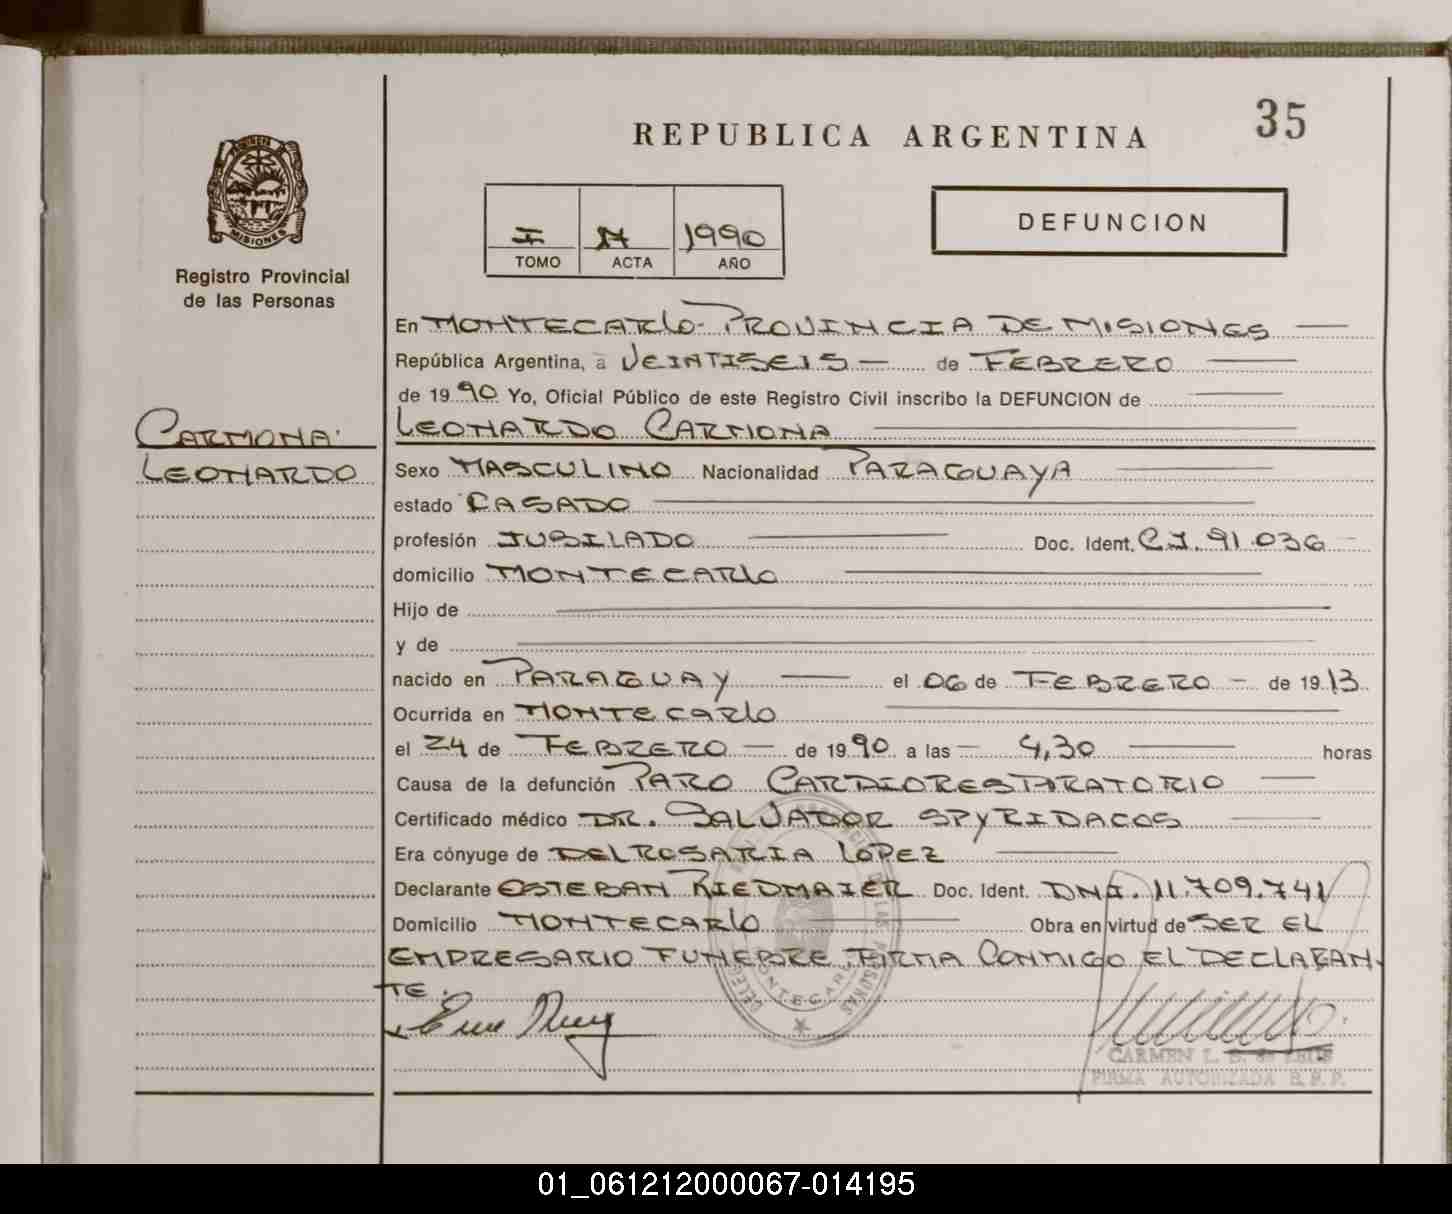 35
REPUBLICA ARGENTINA
I 1990
TOMO ACTA AÑO
DEFUNCION
MISIONES
Registro Provincial
de las Personas
En MONTECARLO - PROVINCIA DE MISIONES
República Argentina, a VEINTISEIS de FEBRERO
de 1990 Yo, Oficial Público de este Registro Civil inscribo la DEFUNCION de
CARMONA
LEONARDO CARMONA
LEONARDO
Sexo MASCULINO Nacionalidad PARAGUAYA
estado CASADO
profesión JUBILADO Doc. Ident. C.I. 91.036
domicilio MONTECARLO
Hijo de
y de
nacido en PARAGUAY el 06 de FEBRERO de 1913
Ocurrida en MONTECARLO
el 24 de FEBRERO de 1990 a las 4,30 horas
Causa de la defunción PARO CARDIORESPIRATORIO
Certificado médico DR. SALVADOR SPYRIDACOS
Era cónyuge de DELROSARIA LOPEZ
Declarante ESTEBAN RIEDMAIER Doc. Ident. DNI. 11.709.741
Domicilio MONTECARLO Obra en virtud de SER EL
EMPRESARIO FUNEBRE FIRMA CONMIGO EL DECLARAN-
TE.
CARMEN L.
FIRMA AUTORIZADA R.P.P.
01_061212000067-014195